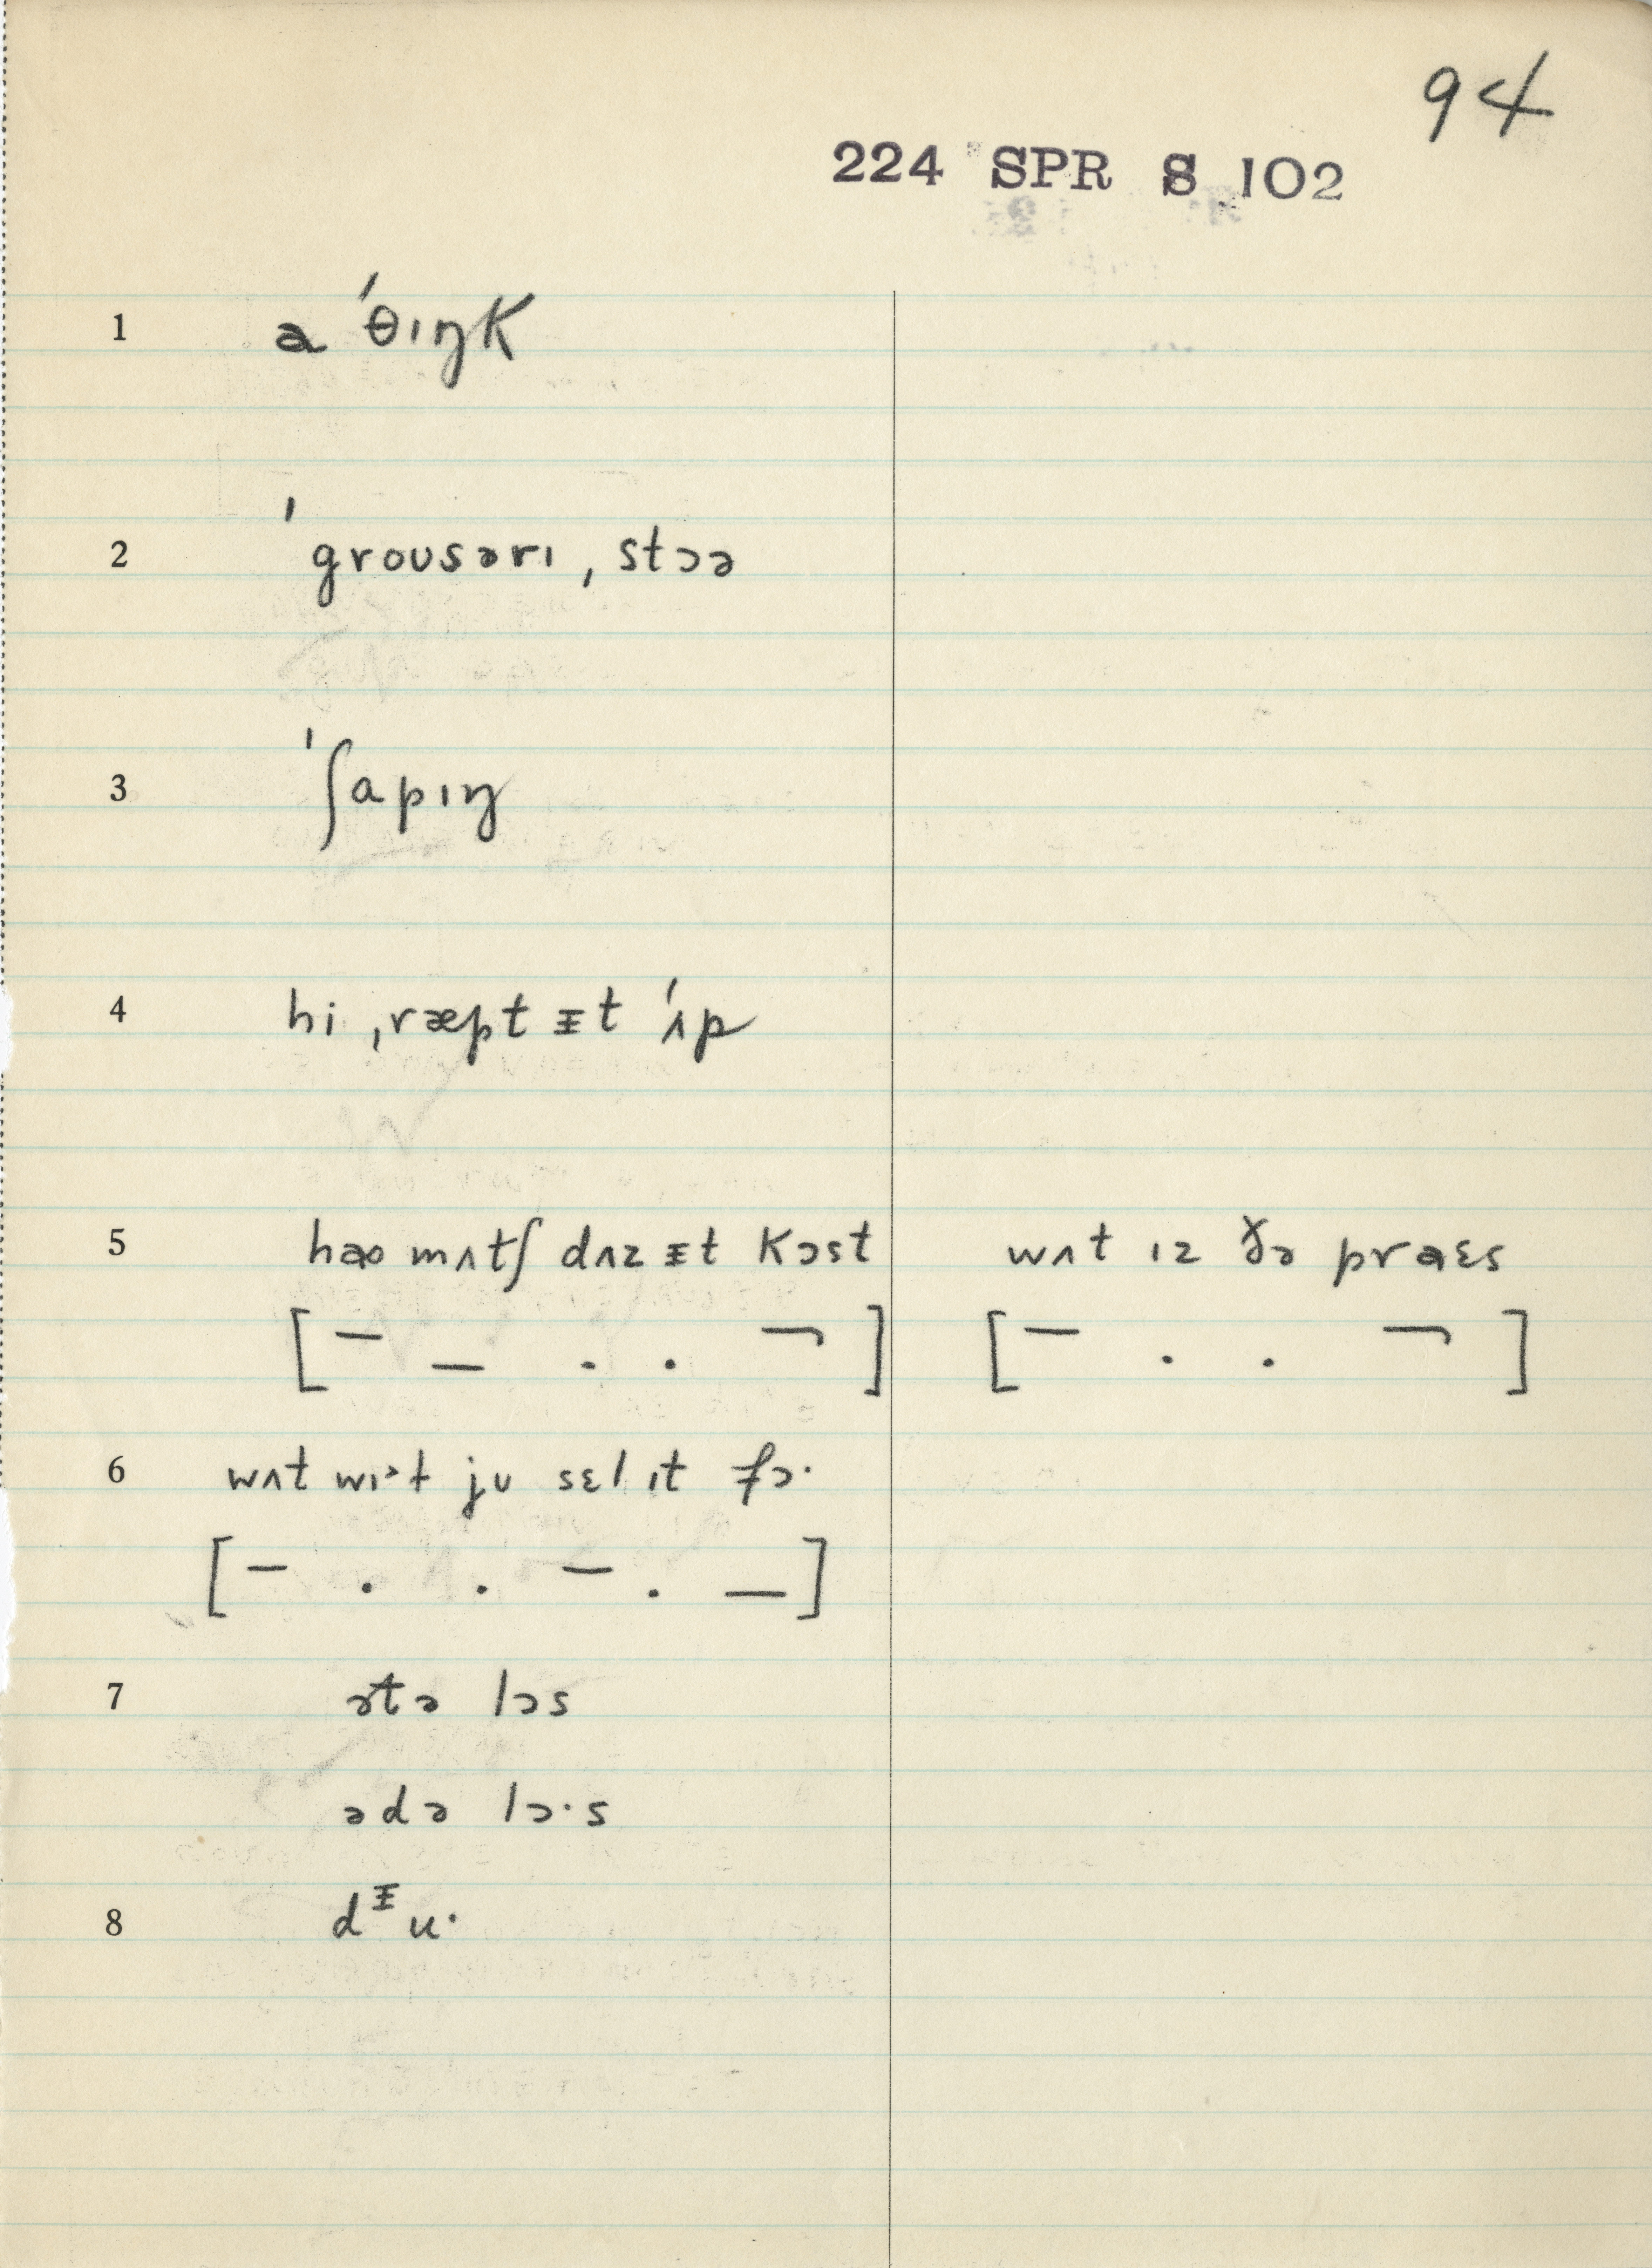 94
224 SPR S 102
1 a ˈθɪŋk
2 ˈgroʊsərɪ ˌstɔə
3 ˈʃapɪŋ
4 hi ˌræpt ᵻt ˈʌp
5 haʊ mʌtʃ dʌz ᵻt kɔst wʌt ɪz ðə praɛs
[ – _ . . ¬ ] [ – . . ¬ ]
6 wʌt wɪ˃t jʊ sɛl ɪt fɔ·
[ – . . – . _ ]
7 ətə lɔs
ədə lɔ·s
8 dᵻu·